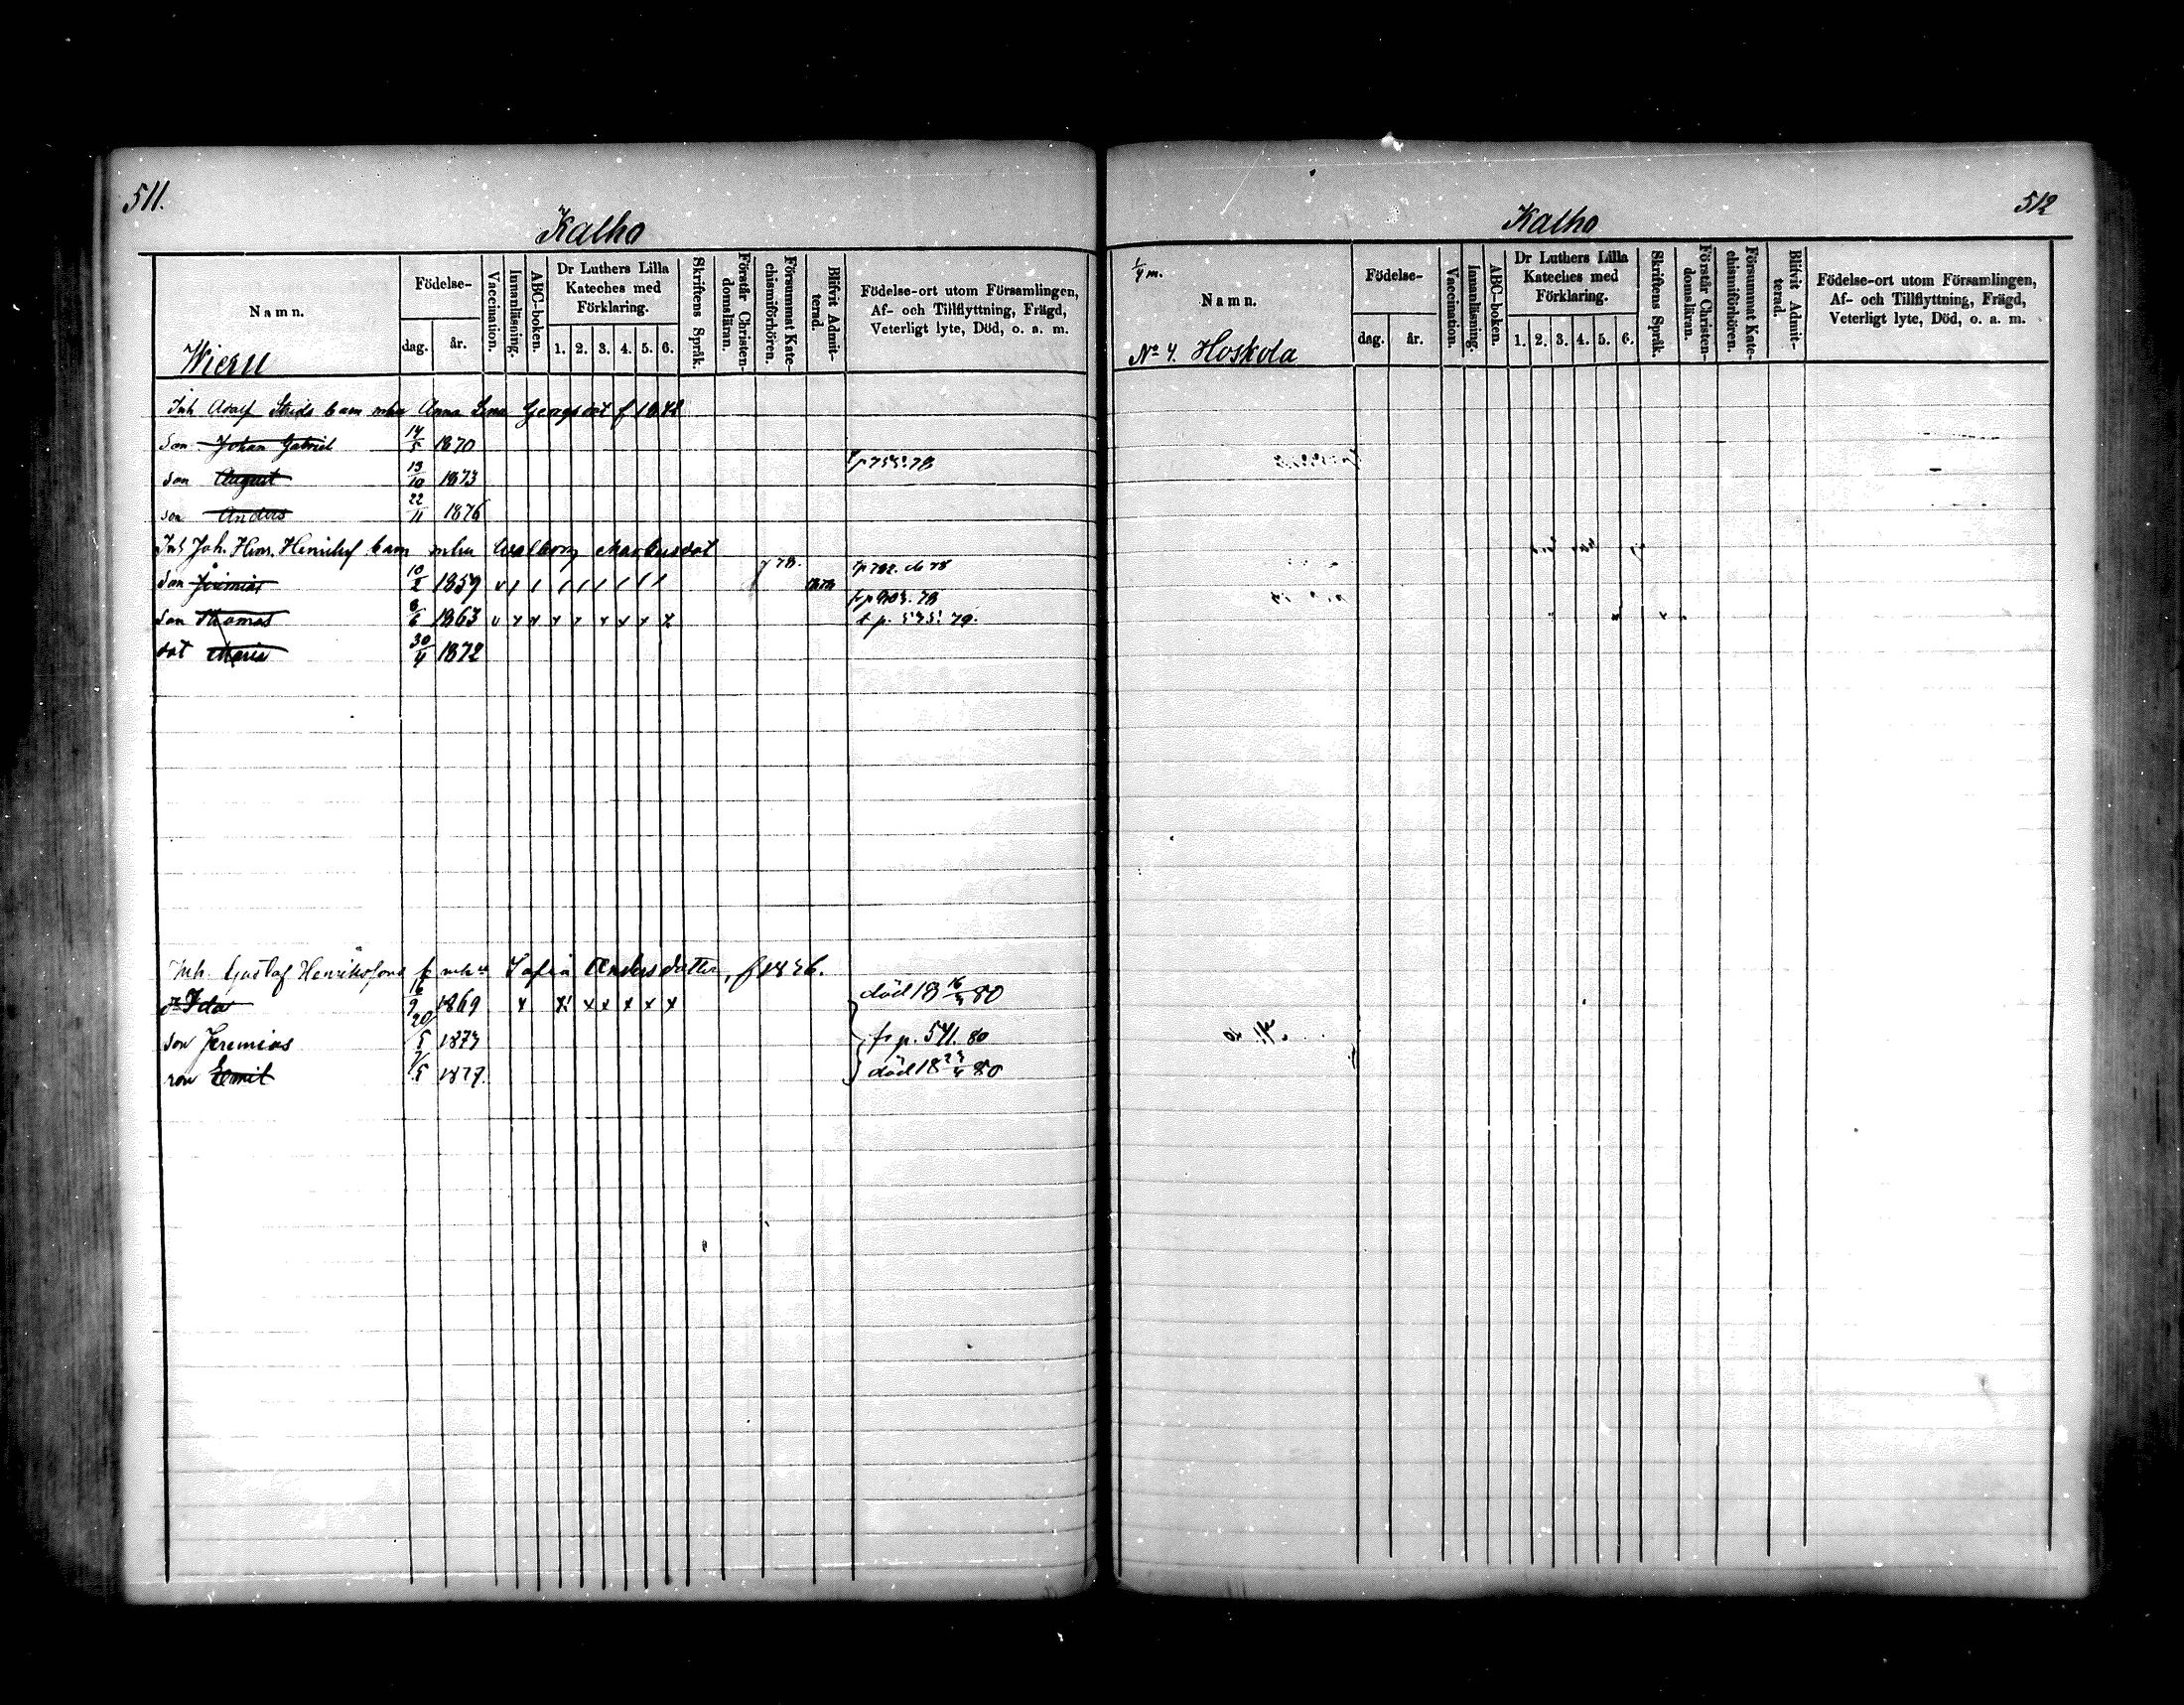 511.
Kalho
Namn.
Födelse-
dag.
år.
Vaccination.
Innanläsning.
ABC-boken.
Dr Luthers Lilla
Kateches med
Förklaring.
1. 2. 3. 4. 5. 6.
Skriftens Språk.
Förstår Christen-
domsläran.
Försummat Kate-
chismiförhören.
Blifvit Admit-
terad.
Födelse-ort utom Församlingen,
Af- och Tillflyttning, Frägd,
Veterligt lyte, Död, o. a. m.
Wieru
Inh Adolf Strids barn mhu Anna Lena Georgsdot f 1842
Son Johan Gabriel 14/5 1870
son August 13/10 1873
son Anders 22/11 1876
Inh Joh. Henr. Henrikss barn mhu Walborg Markusdot
78.
Son Jeremias 10/2 1859 v / / / / / / / / 1878
Son Thomas 8/6 1863 v x x x x x x x x
dot Maria 30/4 1872
Inh. Gustaf Henrikssons b mhu Sofia Andersdotter, f 1836.
dr Ida 16/9 1869 x x x x x x x död 18 16/4 80
son Jeremias 20/5 1873 fr p. 541. 80
son Emil 7/5 1877. död 18 23/4 80
512
Kalho
1/4 m.
Namn.
No 4. Hoskola
Födelse-
dag.
år.
Vaccination.
Innanläsning.
ABC-boken.
Dr Luthers Lilla
Kateches med
Förklaring.
1. 2. 3. 4. 5. 6.
Skriftens Språk.
Förstår Christen-
domsläran.
Försummat Kate-
chismiförhören.
Blifvit Admit-
terad.
Födelse-ort utom Församlingen,
Af- och Tillflyttning, Frägd,
Veterligt lyte, Död, o. a. m.